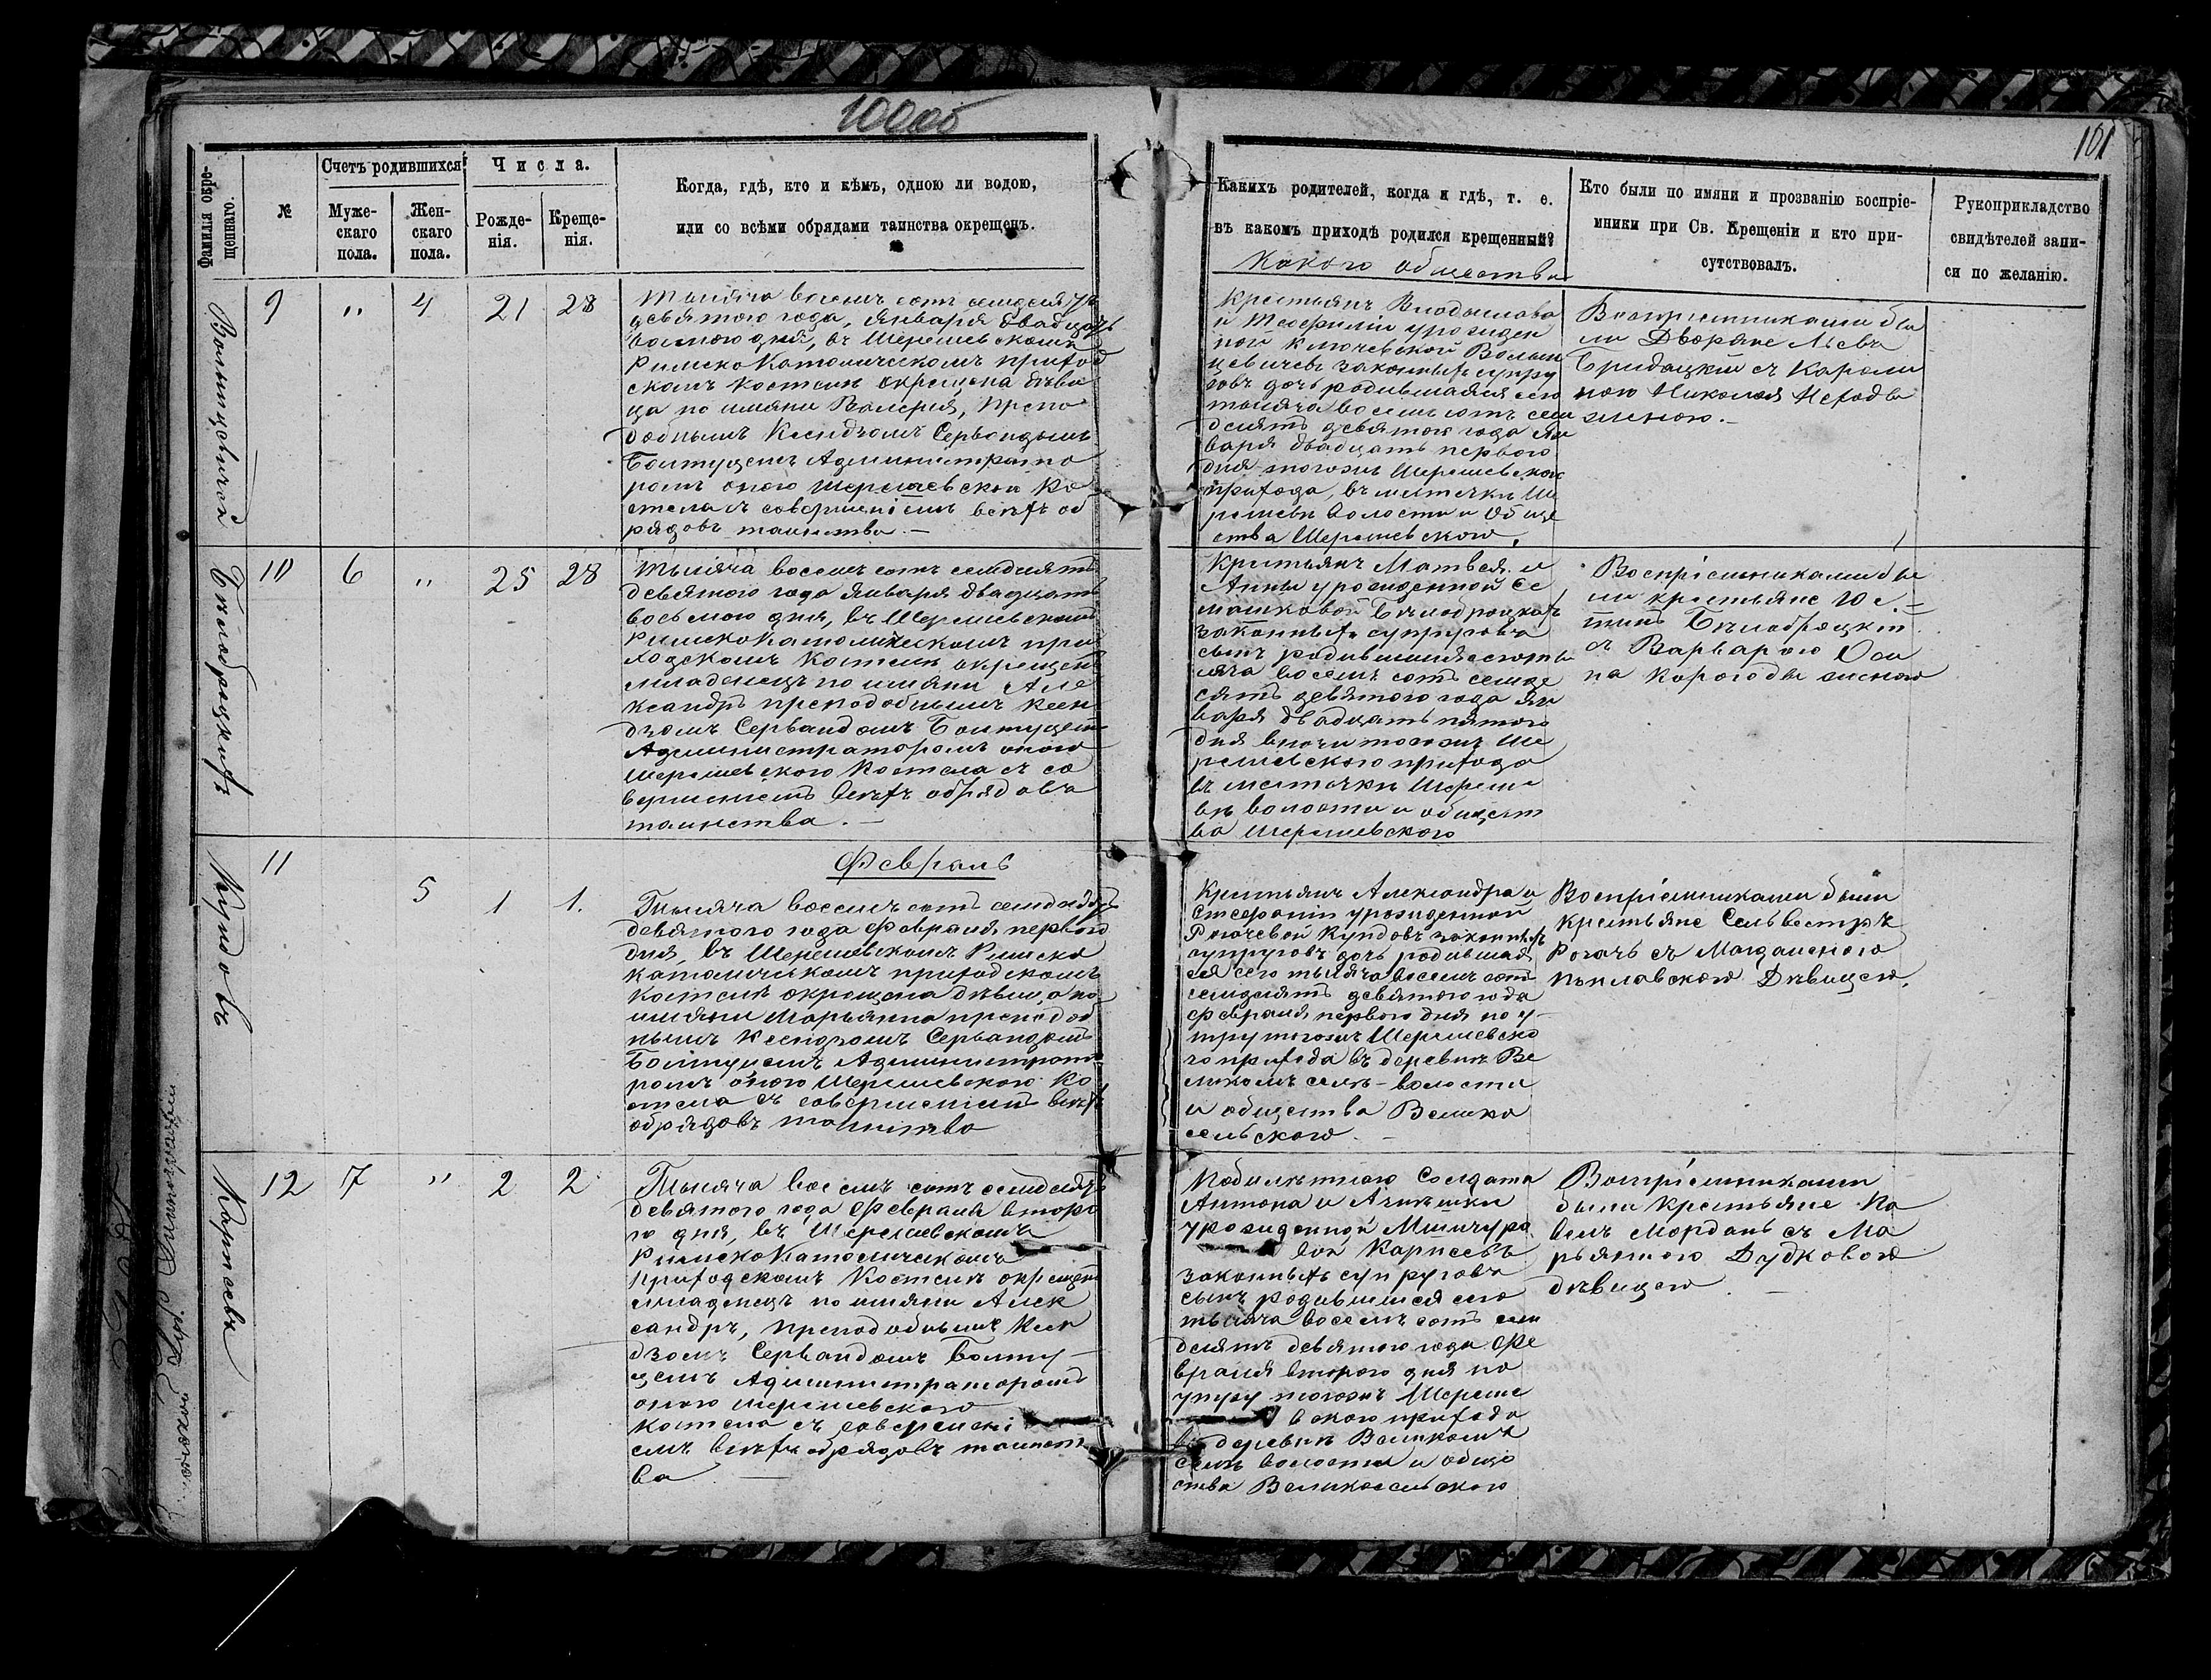 100об
101
Фамилія окре-
щеннаго.
№
Счетъ родившихся
Муже-
скаго
пола.
Жен-
скаго
пола.
Числа.
Рожде-
нія.
Креще-
нія.
Когда, гдѣ, кто и кѣмъ, одною ли водою,
или со всѣми обрядами таинства окрещенъ.
Какихъ родителей, когда и гдѣ, т. е.
въ какомъ приходѣ родился крещенный?
Какого общества
Кто были по имяни и прозванію воспріе-
мники при Св. Крещеніи и кто при-
сутствовалъ.
Рукоприкладство
свидѣтелей запи-
си по желанію.
9
"
4
21
28
Тысяча восемь сотъ семдесятъ
девятого года, Января двадцать
восмого дня, въ Шерешевскомъ
Римско Католическомъ приход
скомъ Костелѣ окрещена дѣви
ца по имяни Валерія, препо
добнымъ Ксендзомъ Сервандомъ
Болтуцемъ Администрато
ромъ оного Шерешевского Ко
стела съ совершеніемъ всѣхъ об
рядовъ таинства.—
Крестьянъ Владыслава
и Теофиліи урожден
ной Ключевской
законныхъ супру
говъ дочь родившаяся сего
тысяча восемь сотъ сем
десятъ девятого года Ян
варя двадцать первого
дня тогожъ Шерешевского
прихода, въ мѣстечкѣ Ше
решевѣ волости и обще
ства Шерешевского.
Воспріемниками бы
ли Дворяне Левъ
съ Кароли
ною Николая
женою.—
Бѣлоброцкихъ
10
6
"
25
28
Тысяча восемь сотъ семдесятъ
девятого года Января двадцать
восьмого дня, въ Шерешевскомъ
Римско Католическомъ при
ходскомъ Костелѣ окрещенъ
младенецъ по имяни Але
ксандръ преподобнымъ Ксен
дзомъ Сервандомъ Болтуцемъ
Администраторомъ оного
Шерешевского Костела съ со
вершеніемъ всѣхъ обрядовъ
таинства.—
Крестьянъ Матвея и
Анны урожденной Се
машковой Бѣлоброцкихъ
законныхъ супруговъ
сынъ родившійся сего ты
сяча восемь сотъ семде
сятъ девятого года Ян
варя двадцать пятого
дня въ ночи тогожъ Ше
решевского прихода
въ мѣстечкѣ Шереше
вѣ волости и общест
ва Шерешевского
Воспріемниками бы
ли крестьяне Юс
тинъ Бѣлоброцкій
съ Варварою Оси
па женою
Кундовъ
11
5
1
1.
Февраль
Тысяча восемь сотъ семдесятъ
девятого года Февраля первого
дня, въ Шерешевскомъ Римско
католическомъ приходскомъ
Костелѣ окрещена дѣвица по
имяни Марьянна преподоб
нымъ Ксендзомъ Сервандомъ
Болтуцемъ Администрато
ромъ оного Шерешевского Ко
стела съ совершеніемъ всѣхъ
обрядовъ таинства
Крестьянъ Александра и
Стефаніи урожденной
Рогачевой Кундовъ законныхъ
супруговъ дочь родившая
ся сего тысяча восемь сотъ
семдесятъ девятого года
Февраля первого дня по у-
тру тогожъ Шерешевско
го прихода въ деревнѣ Ве
ликомъ селѣ—волости
и общества Велико
сельского.—
Воспріемниками были
крестьяне Сельвестръ
Рогачъ съ Магдаленою
Дѣвицею.
Карпсевъ
12
7
"
2
2
Тысяча восемь сотъ семдесятъ
девятого года Февраля второ
го дня, въ Шерешевскомъ
Римско Католическомъ
приходскомъ Костелѣ окрещенъ
младенецъ по имяни Алек
сандръ, преподобнымъ Ксен
дзомъ Сервандомъ Болту-
цемъ Администраторомъ
оного Шерешевского
Костела съ совершені
емъ всѣхъ обрядовъ таинст
ва.—
Солдата
Антона и Агнѣшки
урожденной
вой Карпсевъ
законныхъ супруговъ
сынъ родившійся сего
тысяча восемь сотъ сем
десятъ девятого года Фе
враля второго дня по
утру тогожъ Шереше
вского прихода
въ деревнѣ Великомъ
селѣ волости и обще
ства Великосельского
Воспріемниками
были крестьяне Па
велъ Морданъ съ Ма
рьянною Дудковою
дѣвицею.—